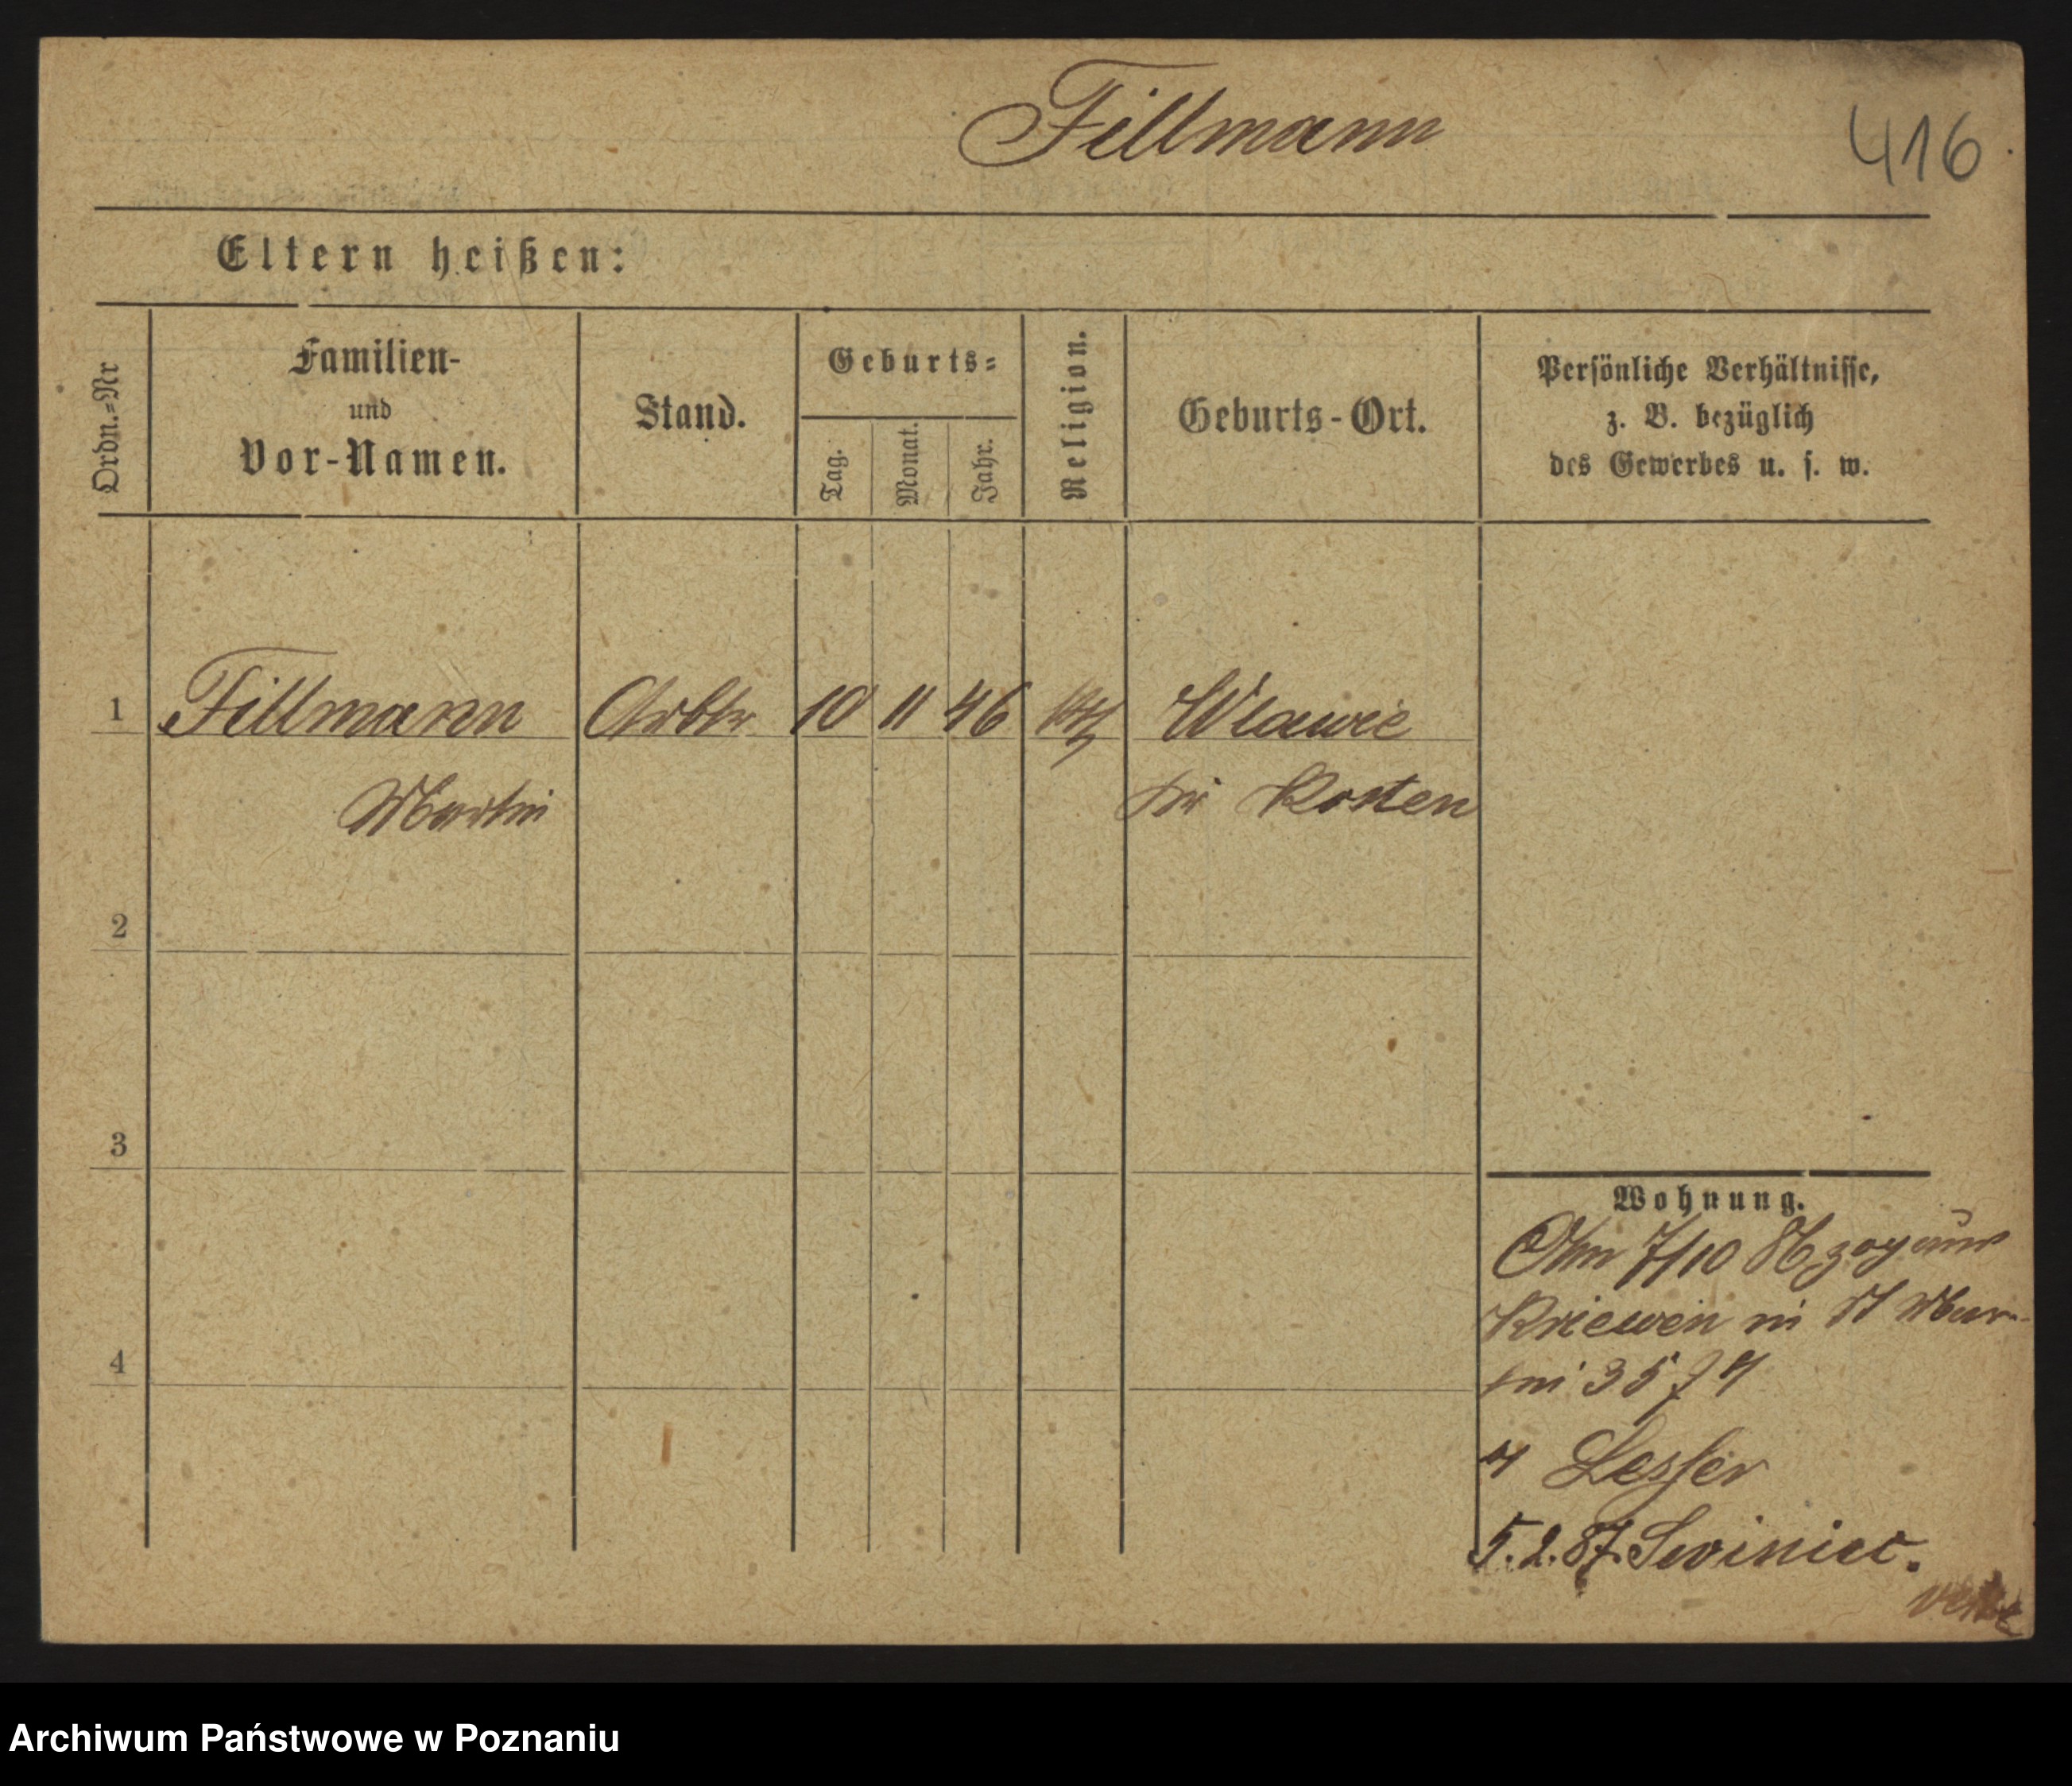 Fillmann
416
Eltern heißen:
Ordn.=Nr
Familien-
und
Vor-Namen.
Stand.
Geburts=
Tag.
Monat.
Jahr.
Religion.
Geburts-Ort.
Persönliche Verhältnisse,
z. B. bezüglich
des Gewerbes u. s. w.
1
Fillmann Arbtr 10 11 46 kth
Martin Kosten
2
3
4
Wohnung.
7/10 86 zog aus
Kriewen in St Mar-
tin 35
Lesser
5.2.87. Swiniec.
Archiwum Państwowe w Poznaniu